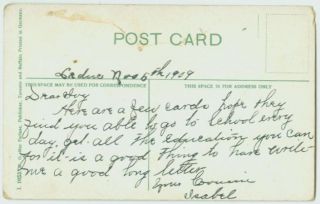 POST CARD
Nov 5th 1909
THIS SPACE MAY BE USED FOR CORRESPONDENCE
THIS SPACE IS FOR ADDRESS ONLY
Dear
Here are a few cards hope they
find you able to go to school every
day. get all the Education you can
for it is a good thing to have write
me a good long letter
your Cousin
Isabel